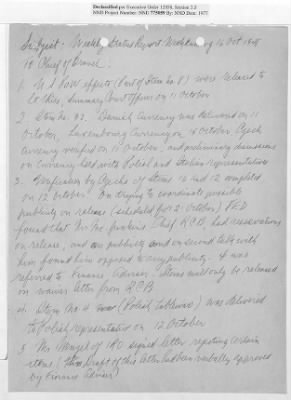 Declassified per Executive Order 12958, Section 3.5
NND Project Number: NND 775059 By: NND Date: 1977
Subject: Weekly Status Report Week ending 16 Oct 1948
To Chief of Branch
1. U.S. POW effects (Part of Item No. 8) were released to
Lt. , Summary Court Officer on 11 October
2. Item No. 93. Danish Currency was delivered on 11
October, Luxembourg Currency on 15 October. Czech
Currency verified on 15 October, and preliminary discussions
on Currency held with Polish and Italian representatives
3. Verification by Czechs of Items 10 and 12 completed
on 12 October. On trying to coordinate possible
publicity on release (scheduled for 21 October) FED
found that Mr. , Chief RCB, had reservations
on release, and on publicity and on second talk with
him found him opposed to any publicity. It was
referred to Finance Adviser. Items will only be released
on waiver letter from RCB
4. Item No. 4 (Polish ) was delivered
to Polish representative on 12 October
5. Mr. Menzel of IRO signed letter rejecting certain
items. (Draft of this letter had been verbally approved
by Finance Adviser)